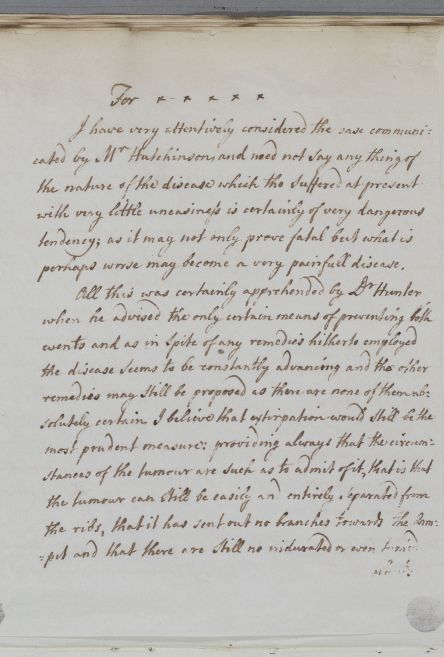 For × × × × ×
I have very attentively considered the case communi:
cated by Mr Hutchinson, and need not say any thing of
the nature of the disease which tho suffered at present
with very little uneasiness is certainly of very dangerous
tendency; as it may not only prove fatal but what is
perhaps worse may become a very painfull disease.
All this was certainly apprehended by Dr Hunter
when he advised the only certain means of preventing both
events and as in spite of any remedies hitherto employed
the disease seems to be constantly advancing and tho other
remedies may still be proposed as there are none of them ab:
solutely certain I believe that extirpation would still be the
most prudent measure: providing always that the circum:
stances of the tumour are such as to admit of it, that is that
the tumour can still be easily and entirely separated from
the ribs, that it has sent out no branches towards the Arm:
:pit and that there are still no indurated or even tumid